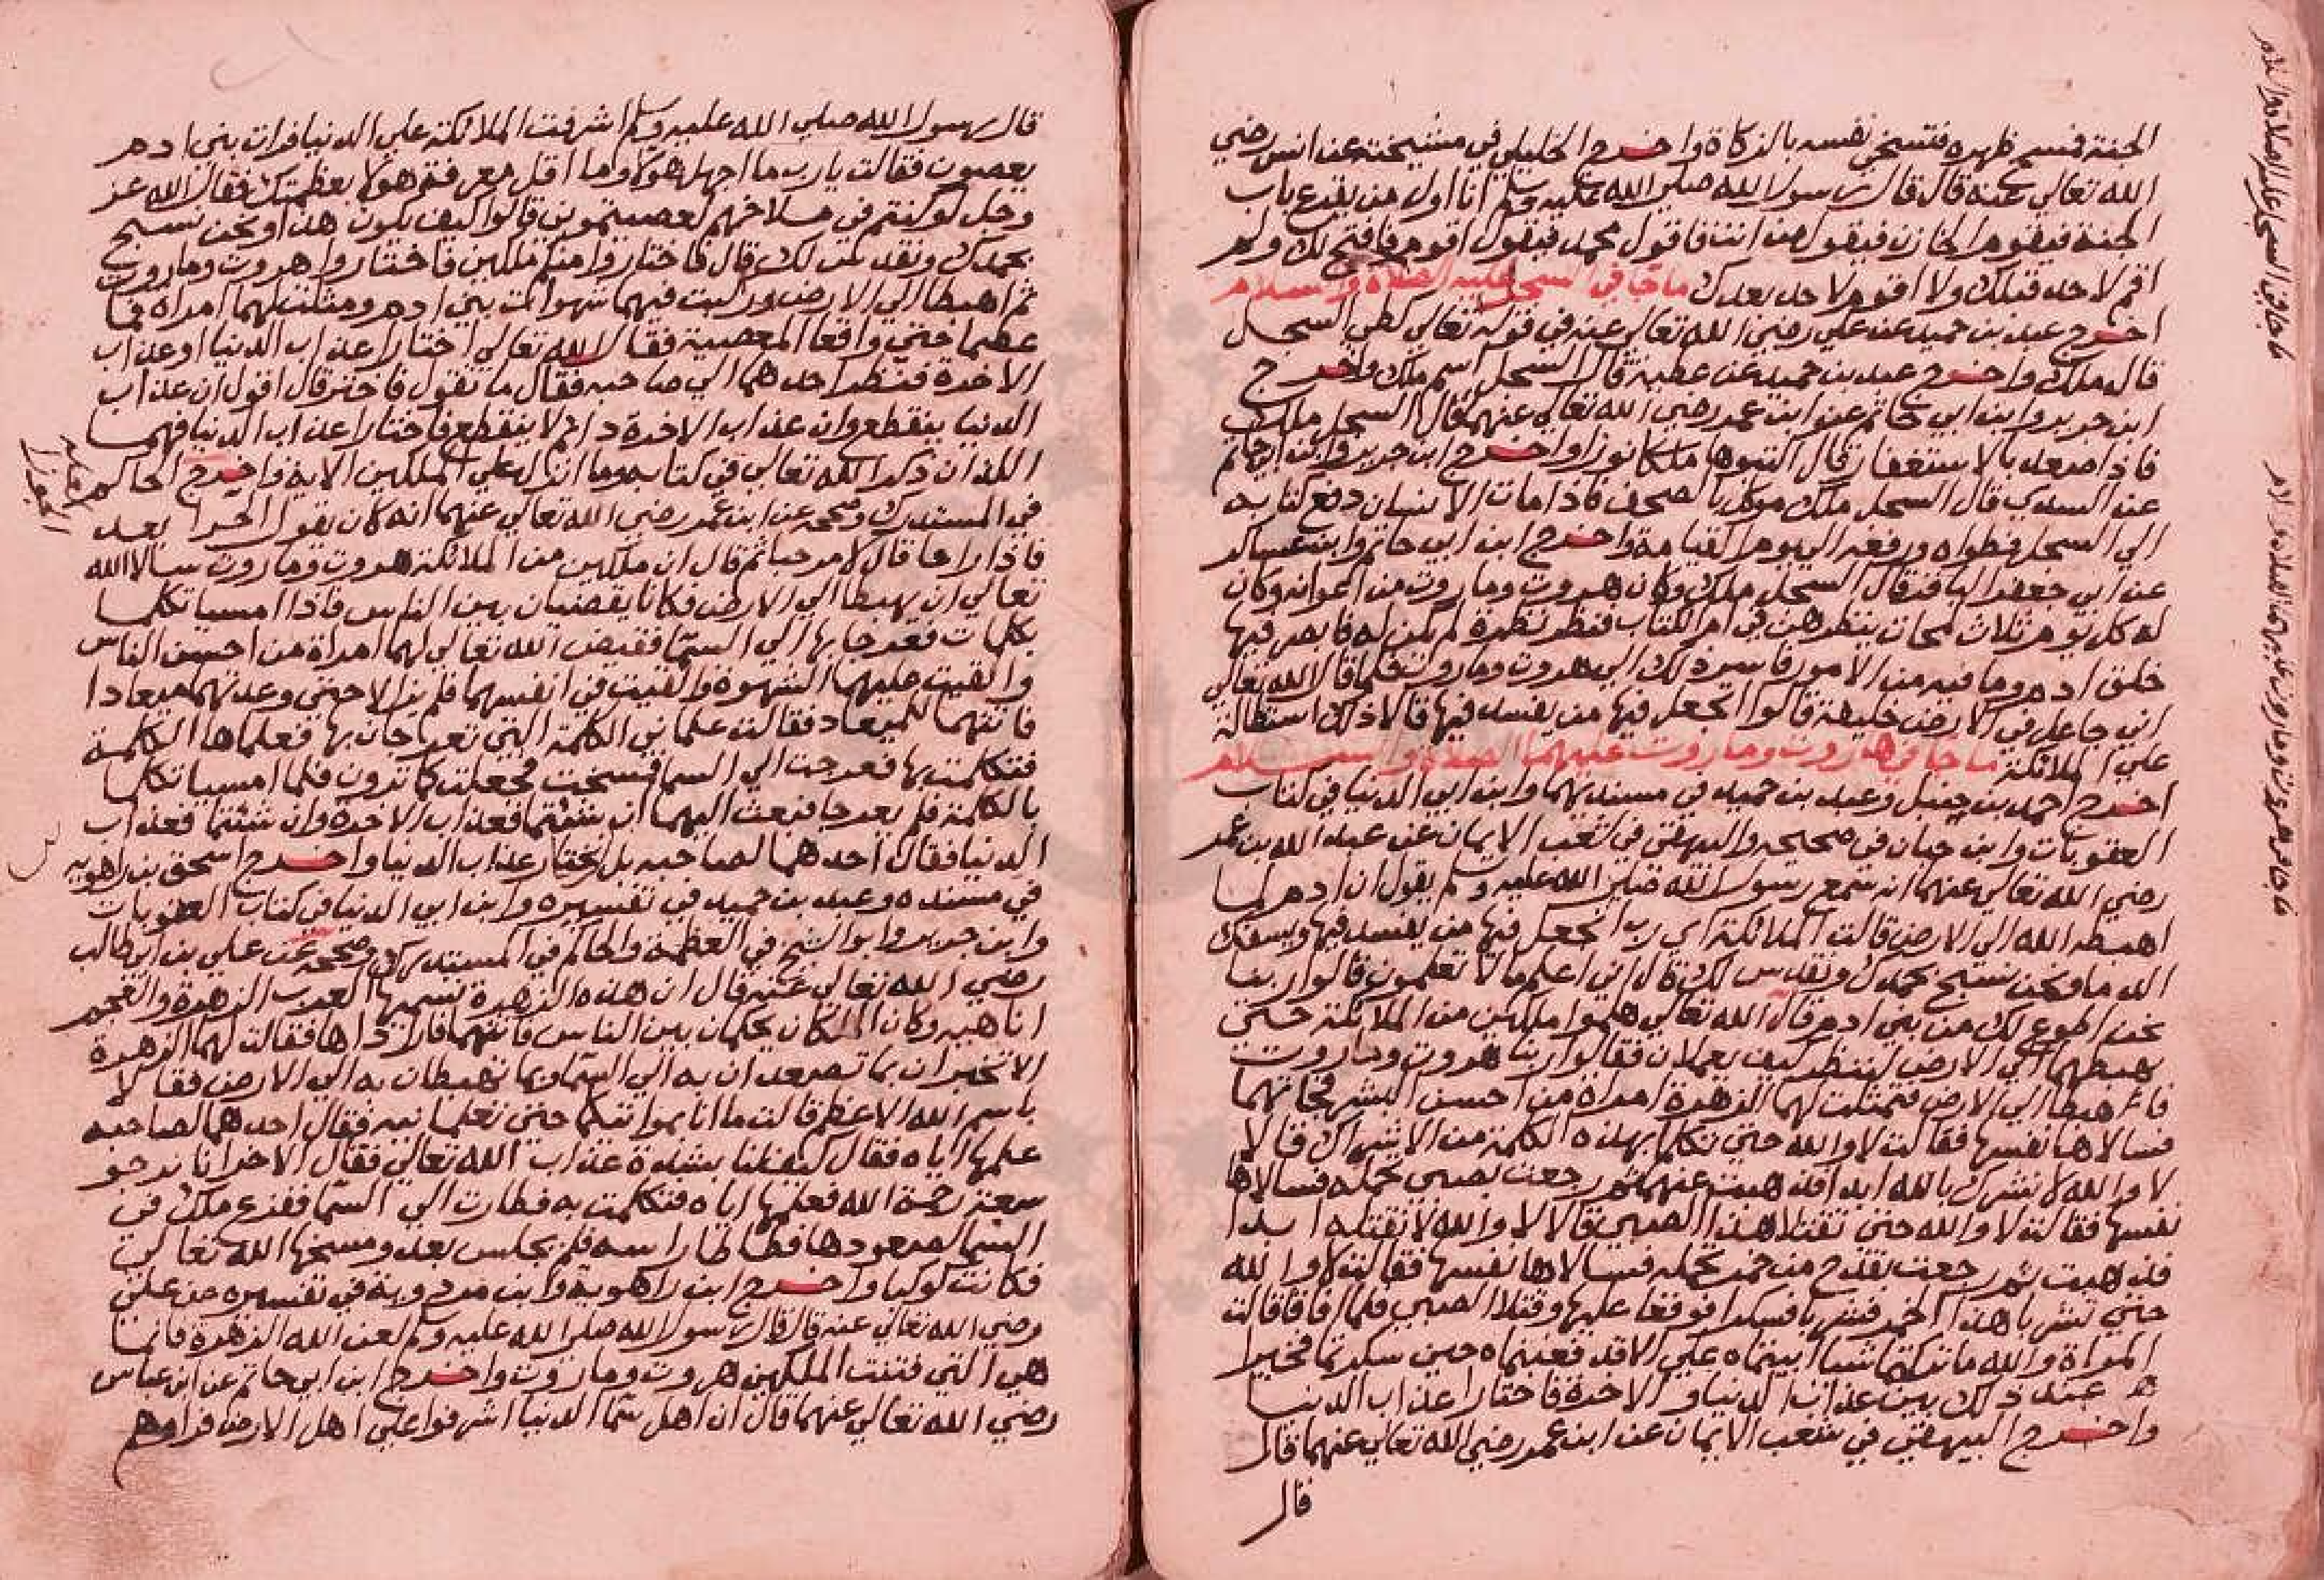 الجنة فمسح ظهره فتسخي نفسه بالزكاة واخرج الخليلي في مشيخته عن انس رضي
الله تعالي عنه قال قال رسول الله صلي الله عليه وسلم انا اول من يقرع باب
الجنة فيقوم الخازن فيقول من انت فاقول محمد فيقول اقوم فافتح لك ولم
اقم لاحد قبلك ولا اقوم لاحد بعدك ما جا في السجل عليه الصلاة والسلام
اخرج عبد بن حميد عن علي رضي الله تعالي عنه في قوله تعالي كطي السجل
قال ملك واخرج عبد بن حميد عن عطية قال السجل اسم ملك واخرج
ابن جرير وابن ابي حاتم عن ابن عمر رضي الله تعالي عنهما قال السجل ملك
فاذا صعد بالاستغفار قال اكتبوها نورا واخرج ابن جرير وابن ابي حاتم
عن السدي قال السجل ملك موكل بالصحف فاذا مات الانسان دفع كتابه
الي السجل فطواه ورفعه الي يوم القيامة واخرج ابن ابي حاتم وابن عساكر
عن ابي جعفر الباقر قال السجل ملك وكان هروت وماروت من اعوانه وكان
له كل يوم ثلاث لمحات ينظرهن في ام الكتاب فنظر نظرة لم تكن له فابصر فيها
خلق ادم وما فيه من الامور فاسر ذلك الي هروت وماروت فلما قال الله تعالي
اني جاعل في الارض خليفة قالوا اتجعل فيها من يفسد فيها قالا ذلك استطالة
علي الملائكة ما جا في هاروت وماروت عليهما الصلاة والسلام
اخرج احمد بن حنبل وعبد بن حميد في مسنديهما وابن ابي الدنيا في كتاب
العقوبات وابن حبان في صحيحه والبيهقي في شعب الايمان عن عبد الله بن عمر
رضي الله تعالي عنهما انه سمع رسول الله صلي الله عليه وسلم يقول ان ادم لما
اهبطه الله الي الارض قالت الملائكة اي رب اتجعل فيها من يفسد فيها ويسفك
الدما ونحن نسبح بحمدك ونقدس لك قال اني اعلم ما لا تعلمون قالوا ربنا
نحن اطوع لك من بني ادم قال الله تعالي هلموا ملكين من الملائكة حتي
نهبطهما الي الارض لننظر كيف يعملان فقالوا ربنا هروت وماروت
فاهبطا الي الارض فتمثلت لهما الزهرة امراة من احسن البشر فجاتهما
فسالاها نفسها فقالت لا والله حتي تكلما بهذه الكلمة من الاشراك قالا
لا والله لا نشرك بالله ابدا فذهبت عنهما ثم رجعت بصبي تحمله فسالاها
نفسها فقالت لا والله حتي تقتلا هذا الصبي قالا لا والله لا نقتله ابدا
فذهبت ثم رجعت بقدح من خمر تحمله فسالاها نفسها فقالت لا والله
حتي تشربا هذا الخمر فشربا فسكرا فوقعا عليها وقتلا الصبي فلما افاقا قالت
المراة والله ما تركتما شيا ابيتماه علي الا قد فعلتماه حين سكرتما فخيرا
عند ذلك بين عذاب الدنيا والاخرة فاختارا عذاب الدنيا
واخرج البيهقي في شعب الايمان عن ابن عمر رضي الله تعالي عنهما قال
قال
قال رسول الله صلي الله عليه وسلم اشرفت الملائكة علي الدنيا فرات بني ادم
يعصون فقالت يا رب ما اجهل هولا وما اقل معرفة هولا بعظمتك فقال الله عز
وجل لو كنتم في مسلاخهم لعصيتموني قالوا كيف يكون هذا ونحن نسبح
بحمدك ونقدس لك قال فاختاروا منكم ملكين فاختاروا هروت وماروت
ثم اهبطا الي الارض وركبت فيهما شهوات بني ادم ومثلت لهما امراة فما
عصما حتي واقعا المعصية فقال الله تعالي اختارا عذاب الدنيا او عذاب
الاخرة فنظر احدهما الي صاحبه فقال ما تقول فاختر قال اقول ان عذاب
الدنيا ينقطع وان عذاب الاخرة دائم لا ينقطع فاختارا عذاب الدنيا فهما
اللذان ذكر الله تعالي في كتابه وما انزل علي الملكين الاية واخرج الحاكم
في المستدرك وصححه عن ابن عمر رضي الله تعالي عنهما انه كان يقول الحمرا بعد
فاذا راها قال لا مرحبا ثم قال ان ملكين من الملائكة هروت وماروت سالا الله
تعالي ان يهبطا الي الارض فكانا يقضيان بين الناس فاذا امسيا تكلما
بكلمات فعرجا بها الي السما فقيض الله تعالي لهما امراة من احسن الناس
والقيت عليهما الشهوة والقيت في انفسهما فلم يزالا حتي وعدتهما ميعادا
فاتتهما للميعاد فقالت علماني الكلمة التي تعرجان بها فعلماها الكلمة
فتكلمت بها فعرجت الي السما فمسخت فجعلت كما ترون فلما امسيا تكلما
بالكلمة فلم يعرجا فبعث اليهما ان شئتما فعذاب الاخرة وان شئتما فعذاب
الدنيا فقال احدهما لصاحبه بل نختار عذاب الدنيا واخرج اسحق بن راهويه
في مسنده وعبد بن حميد في تفسيره وابن ابي الدنيا في كتاب العقوبات
وابن جرير وابو الشيخ في العظمة والحاكم في المستدرك وصححه عن علي بن ابي طالب
رضي الله تعالي عنه قال ان هذه الزهرة تسميها العرب الزهرة والعجم
اناهيد وكان الملكان يحكمان بين الناس فاتتهما فاراداها فقالت لهما الزهرة
الا تخبراني بما تصعدان به الي السما وبما تهبطان به الي الارض فقالا
باسم الله الاعظم قالت ما انا بمواتيتكما حتي تعلمانيه فقال احدهما لصاحبه
علمها اياه فقال كيف لنا بشدة عذاب الله تعالي فقال الاخر انا نرجو
سعة رحمة الله فعلمها اياه فتكلمت به فطارت الي السما ففزع ملك في
السما لصعودها فطاطا راسه فلم يجلس بعد ومسخها الله تعالي
فكانت كوكبا واخرج ابن راهوية وابن مردوية في تفسيره عن علي
رضي الله تعالي عنه قال قال رسول الله صلي الله عليه وسلم لعن الله الزهرة فانها
هي التي فتنت الملكين هروت وماروت واخرج ابن ابي حاتم عن ابن عباس
رضي الله تعالي عنهما قال ان اهل سما الدنيا اشرفوا علي اهل الارض فراوهم